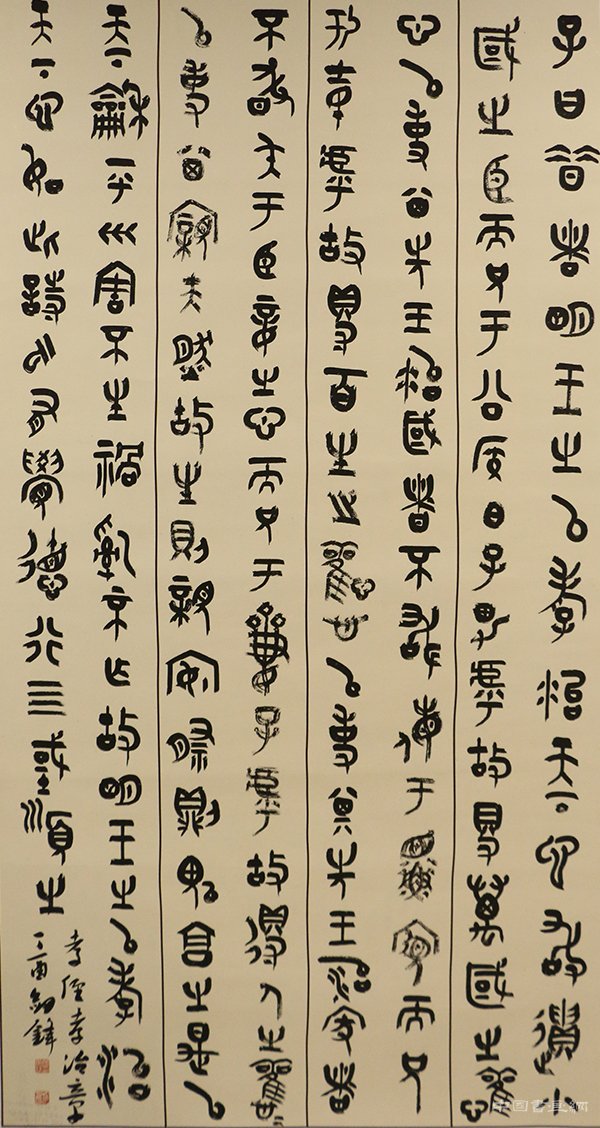 子曰昔者明王之以孝治天下也敢遺小
國之臣而況于公侯伯子男乎故得萬國之懽
心以事其先王治國者不敢侮于鰥寡而況
于乎故得百生之懽心以事其先王治家者
不敢失于臣妾之心而況于妻子乎故得人之懽心
以事其親夫然故生則親安祭則鬼享之是以
天下和平災害不生禍亂不作故明王之以孝治
天下也如此詩云有覺德行四國順之
孝經孝治章
丁酉劍鋒
中国书画网